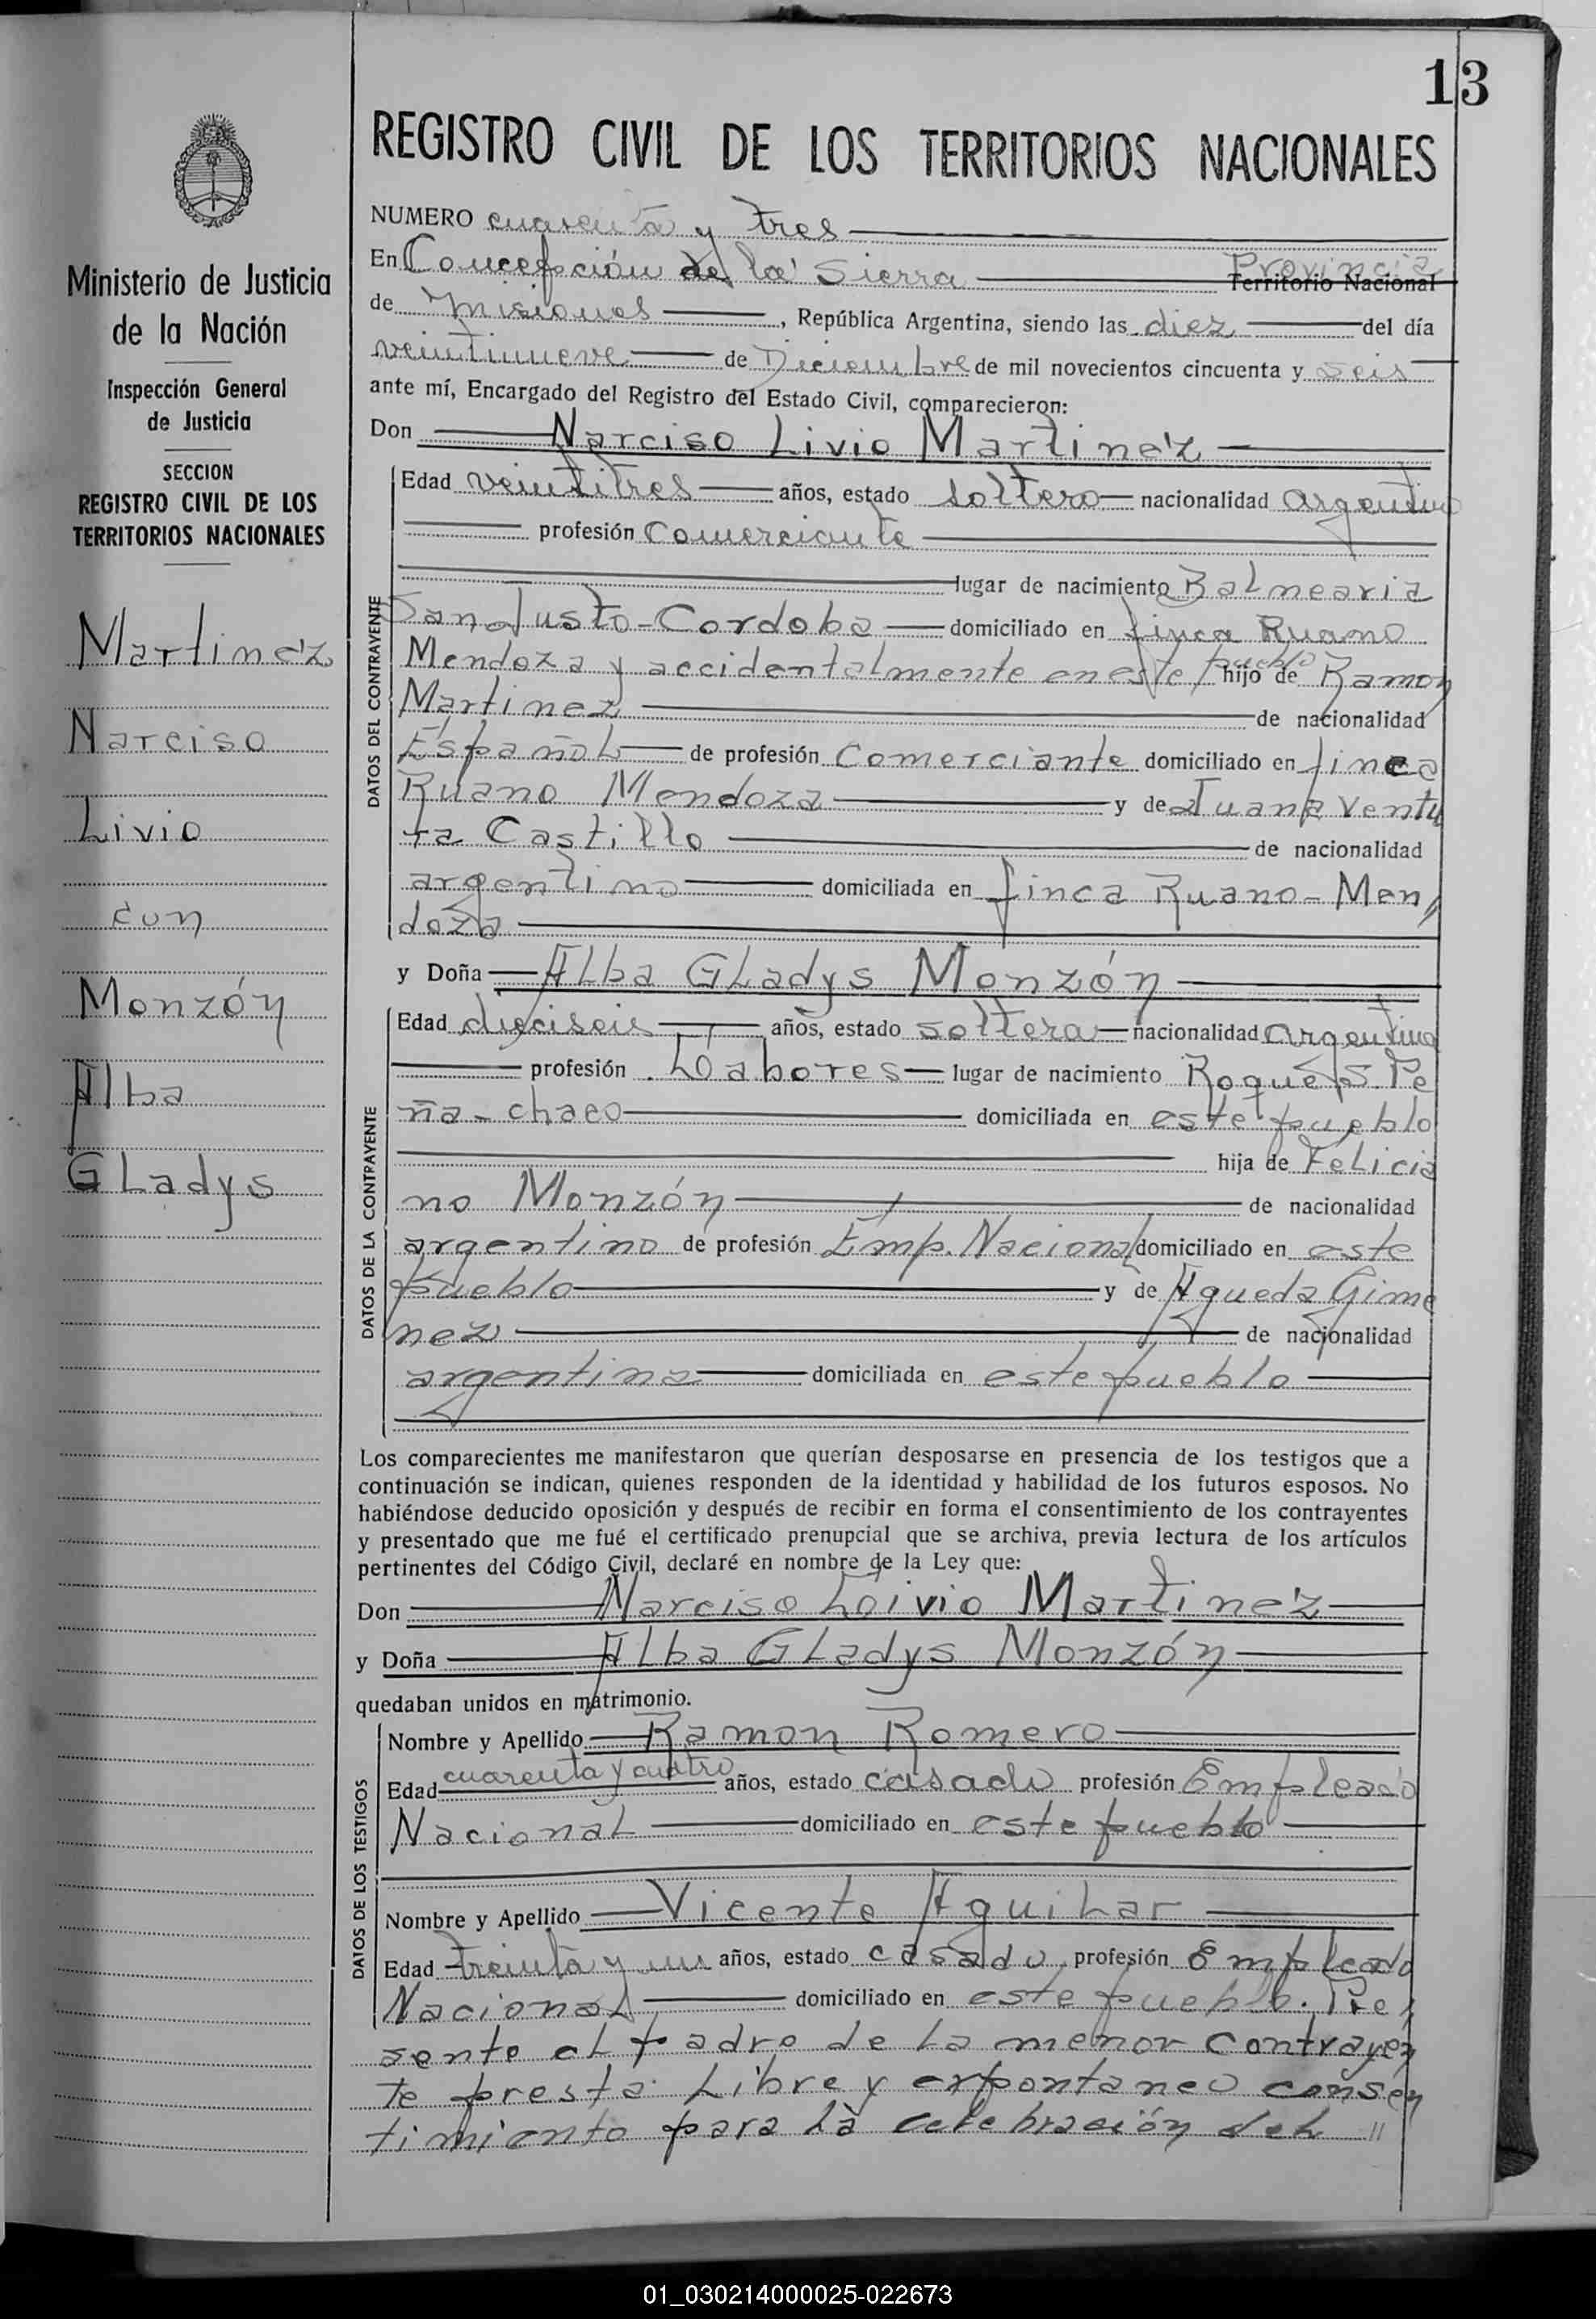 13
REGISTRO CIVIL DE LOS TERRITORIOS NACIONALES
Ministerio de Justicia
de la Nación
Inspección General
de Justicia
SECCION
REGISTRO CIVIL DE LOS
TERRITORIOS NACIONALES
Martine'z
Narciso
Livio
con
Monzón
Alba
GLadys
NUMERO cuarenta y tres
En Concepción de la Sierra Provincia
Territorio Nacional
de Misiones, República Argentina, siendo las diez del día
veintinueve de Diciembre de mil novecientos cincuenta y seis
ante mí, Encargado del Registro del Estado Civil, comparecieron:
Don Narciso Livio Martine'z
DATOS DEL CONTRAYENTE
Edad veintitres años, estado soltero nacionalidad argentino
profesión Comerciante
lugar de nacimiento Balnearia
San Justo - Cordoba domiciliado en finca Ruano
Mendoza y accidentalmente en este pueblo hijo de Ramon
Martinez de nacionalidad
Español de profesión Comerciante domiciliado en finca
Ruano Mendoza y de Juana Ventu
ra Castillo de nacionalidad
argentino domiciliada en finca Ruano - Men //
doza
y Doña Alba GLadys Monzón
DATOS DE LA CONTRAYENTE
Edad dieciseis años, estado soltera nacionalidad argentina
profesión Labores lugar de nacimiento Roque S. Pe
ña - chaco domiciliada en este pueblo
hija de Felicia
no Monzón de nacionalidad
argentino de profesión Emp. Nacional domiciliado en este
pueblo y de Agueda Gime
nez de nacionalidad
argentina domiciliada en este pueblo
Los comparecientes me manifestaron que querían desposarse en presencia de los testigos que a
continuación se indican, quienes responden de la identidad y habilidad de los futuros esposos. No
habiéndose deducido oposición y después de recibir en forma el consentimiento de los contrayentes
y presentado que me fué el certificado prenupcial que se archiva, previa lectura de los artículos
pertinentes del Código Civil, declaré en nombre de la Ley que:
Don Narciso Livio Martine'z
y Doña Alba GLadys Monzón
quedaban unidos en matrimonio.
DATOS DE LOS TESTIGOS
Nombre y Apellido Ramon Romero
Edad cuarenta y cuatro años, estado casado profesión Empleado
Nacional domiciliado en este pueblo
Nombre y Apellido Vicente Aguilar
Edad treinta y un años, estado casado profesión Empleado
Nacional domiciliado en este pueblo. Pre /
sente el padre de la menor contrayen
te presta libre y expontaneo consen
timiento para la celebración del //
01_030214000025-022673